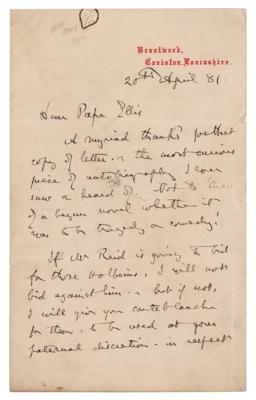 Brantwood,
Coniston, Lancashire.
20th April 81.
Dear Papa Ellis
A myriad thanks for that
copy of letter. - the most curious
piece of autobiography I ever
saw or heard of. Not to know
of a begun novel whether it
was to be tragedy or comedy!
If Mr Reid is going to bid
for those Holbeins, I will not
bid against him. - but if not,
I will give you carte blanche
for them, to be used at your
paternal discretion - in respect